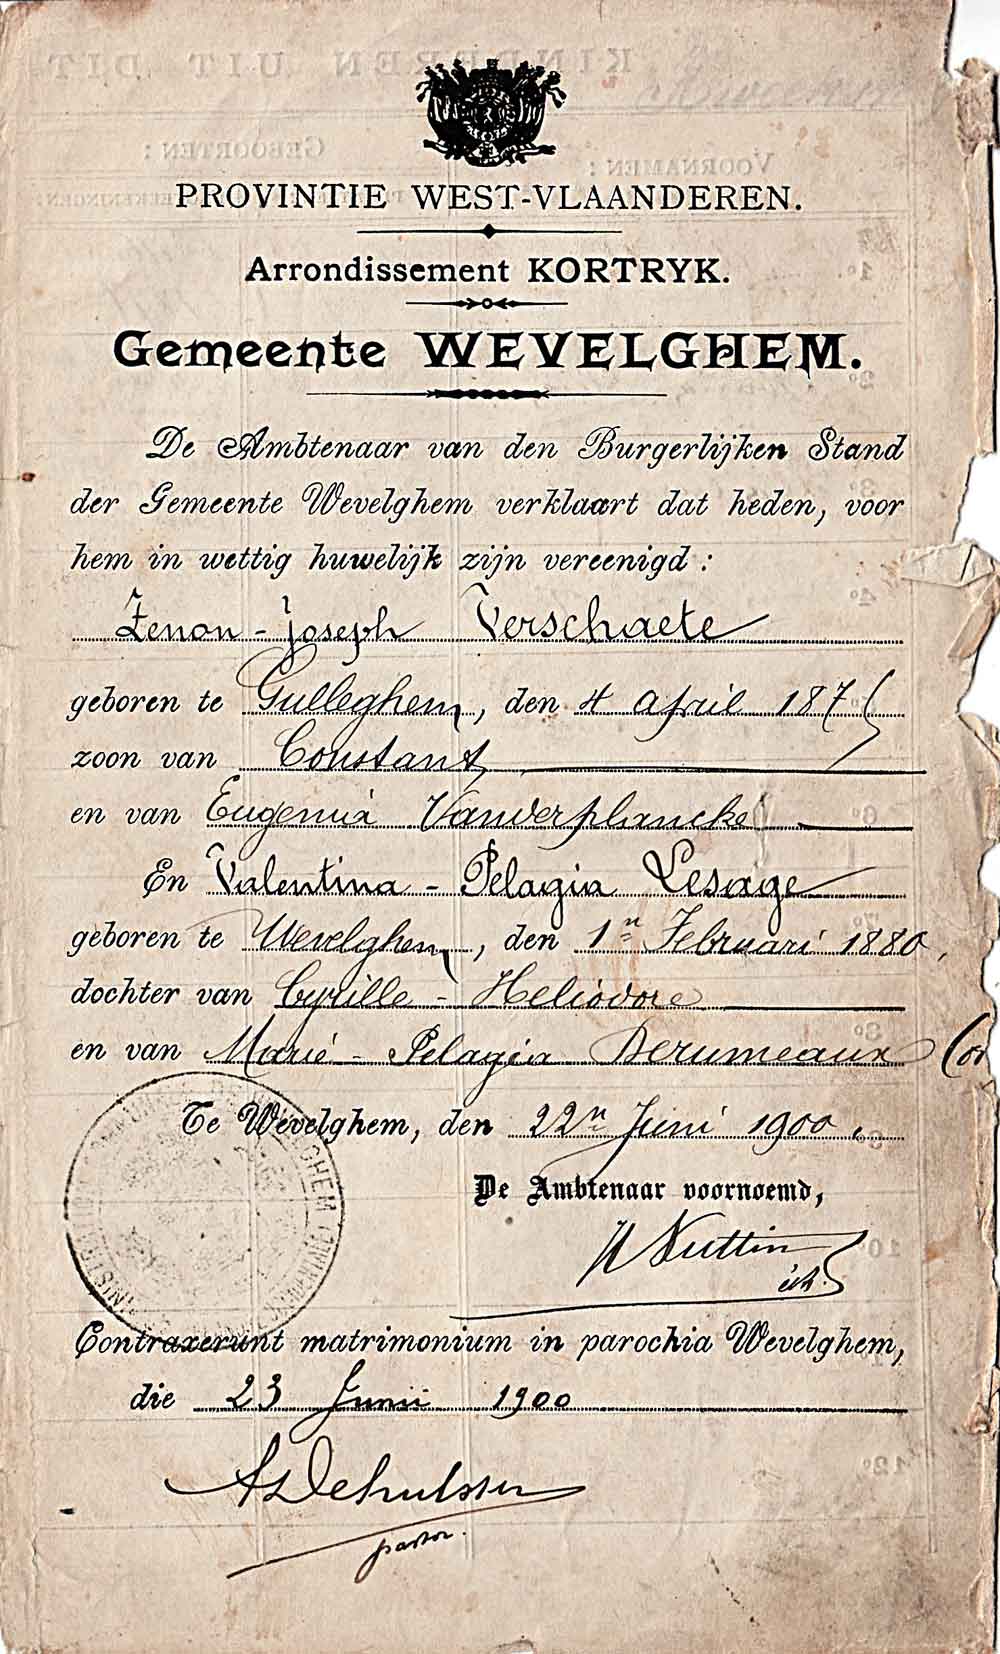 PROVINTIE WEST-VLAANDEREN.
Arrondissement KORTRYK.
Gemeente WEVELGHEM.
De Ambtenaar van den Burgerlijken Stand
der Gemeente Wevelghem verklaart dat heden, voor
hem in wettig huwelijk zijn vereenigd :
Zenon - Joseph Verschaete
geboren te Gulleghem, den 4 April 187
zoon van Constant
en van Eugenia Vanderplancke
En Valentina - Pelagia Lesage
geboren te Wevelghem, den 1n Februari 1880,
dochter van Cyrille - Heliodore
en van Marie - Pelagia Derumeaux
Te Wevelghem, den 22n Juni 1900.
De Ambtenaar voornoemd,
Contraxerunt matrimonium in parochia Wevelghem,
die 23 Junii 1900
pastor.